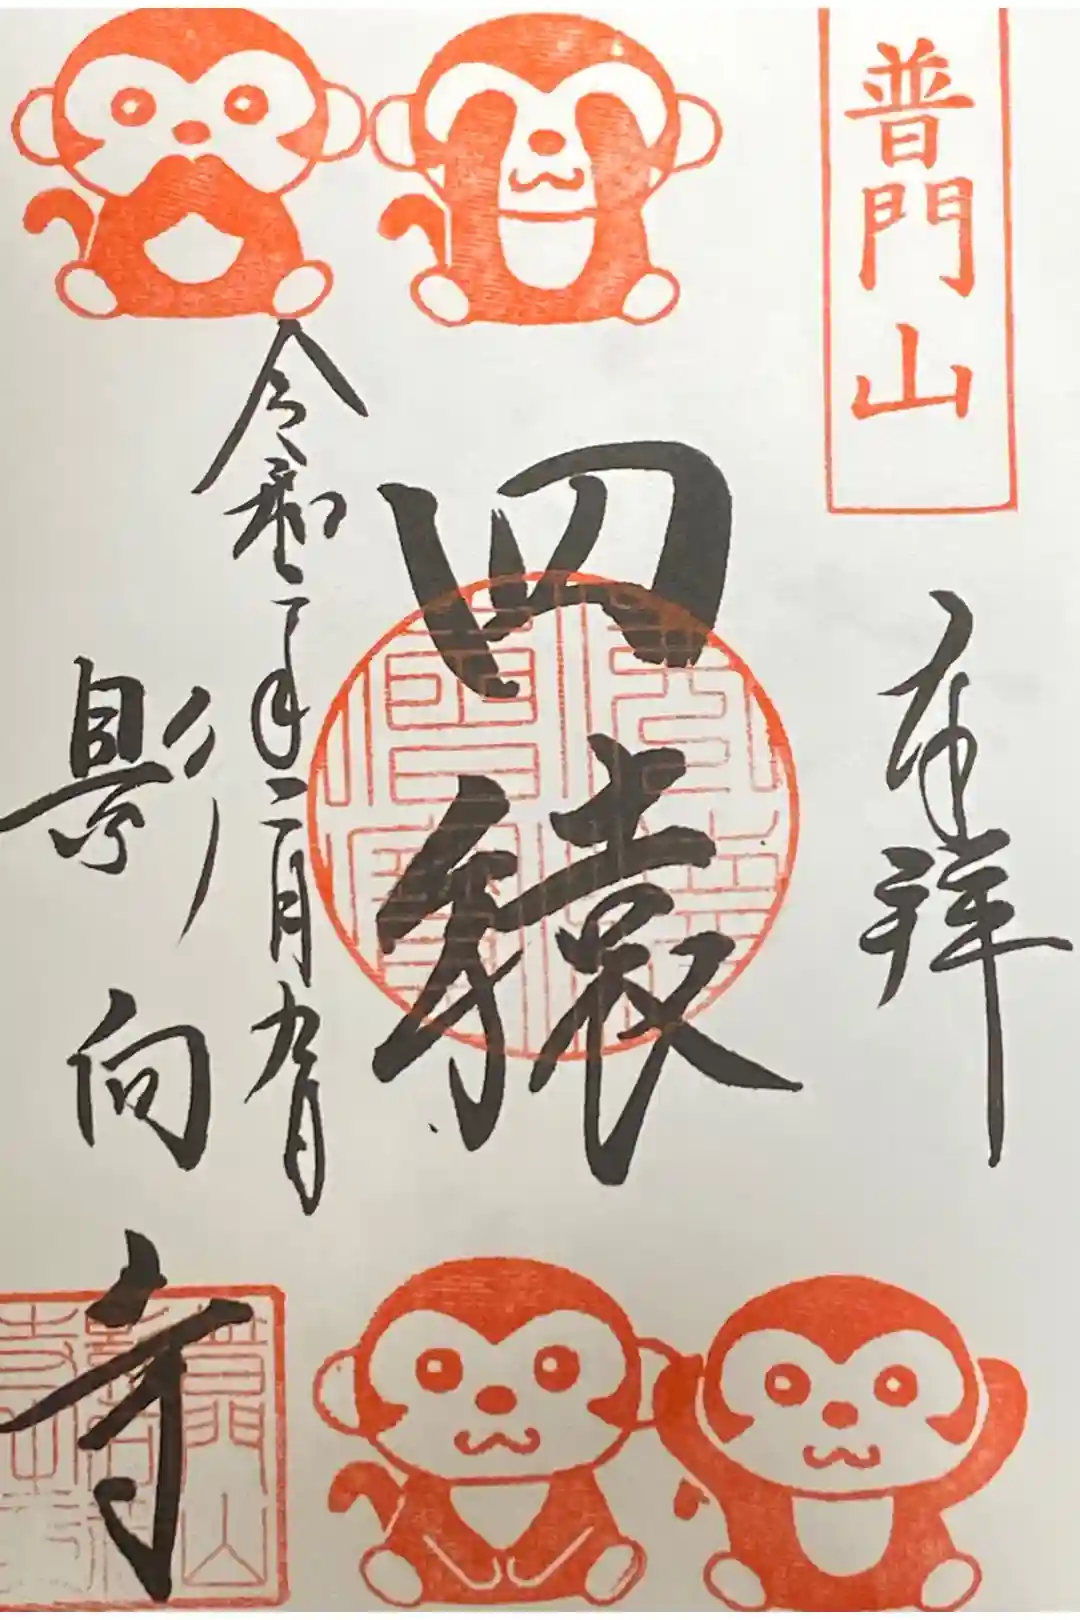 普門山
奉拝
四猿
令和二年二月九日
影向寺